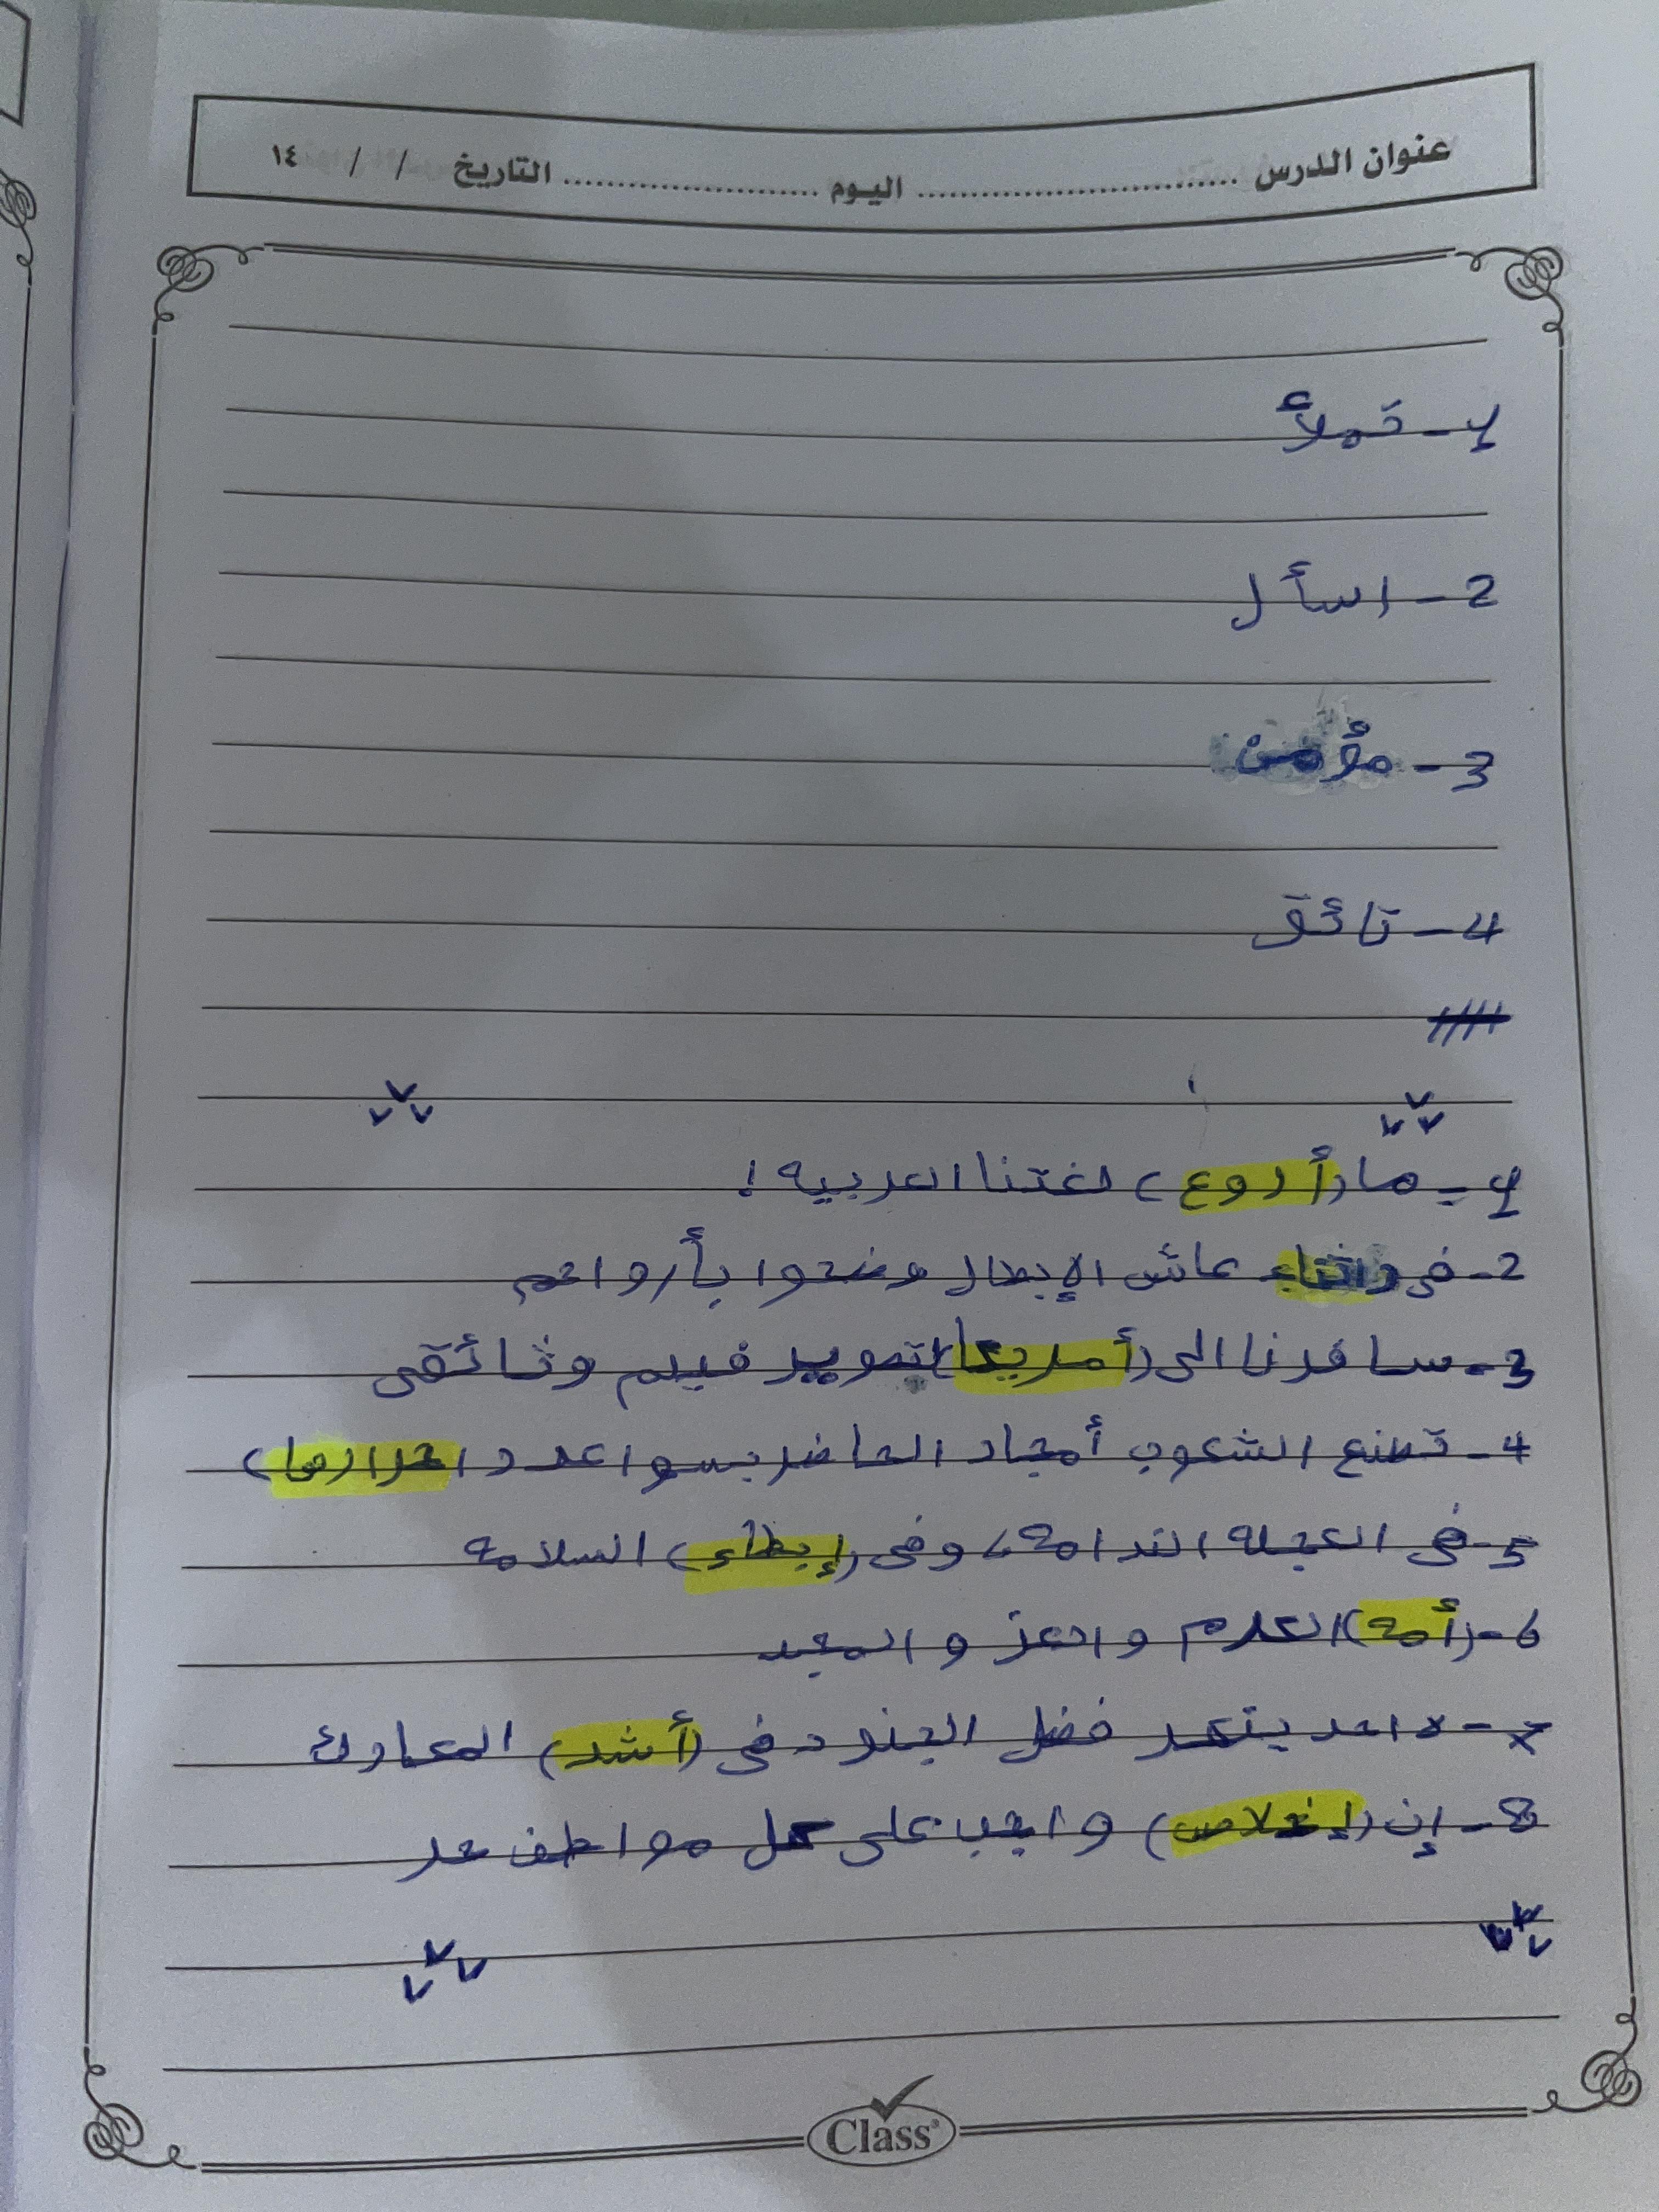 عنوان الدرس ........................ اليوم ........................ التاريخ / / ١٤
1- تملأ
2- اسأل
3- مؤمن
4- تائق
1- ما (أروع) لغتنا العربيه !
2- فى عاش الإبطال وضحوا بأرواحم
3- سافرنا الى (أمريكا) لتصوير فيلم وثائقى
4- تصنع الشعوب أمجاد الحاضر بسواعد (احرارها)
5- فى العجله الندامه، وفى (إبطاء) السلامه
6- (أمه) الكرم والعز و المجد
7- لا احد ينكر فضل الجنود فى (أشد) المعارك
8- إن (إخلاص) واجب على كل مواطن حر
Class